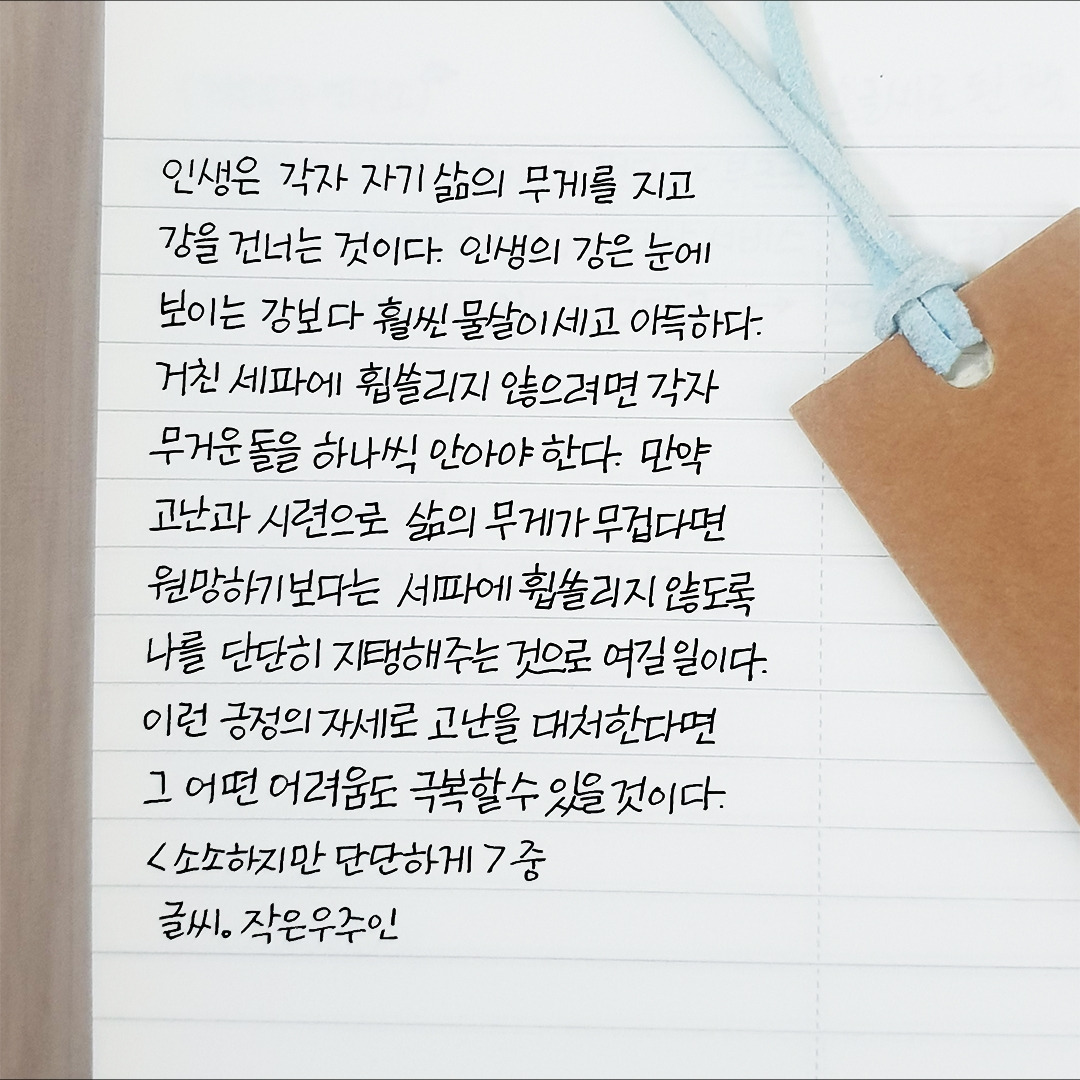 인생은 각자 자기 삶의 무게를 지고
강을 건너는 것이다. 인생의 강은 눈에
보이는 강보다 훨씬 물살이 세고 아득하다.
거친 세파에 휩쓸리지 않으려면 각자
무거운 돌을 하나씩 안아야 한다. 만약
고난과 시련으로 삶의 무게가 무겁다면
원망하기보다는 세파에 휩쓸리지 않도록
나를 단단히 지탱해주는 것으로 여길 일이다.
이런 긍정의 자세로 고난을 대처한다면
그 어떤 어려움도 극복할 수 있을 것이다.
<소소하지만 단단하게> 중
글씨. 작은우주인